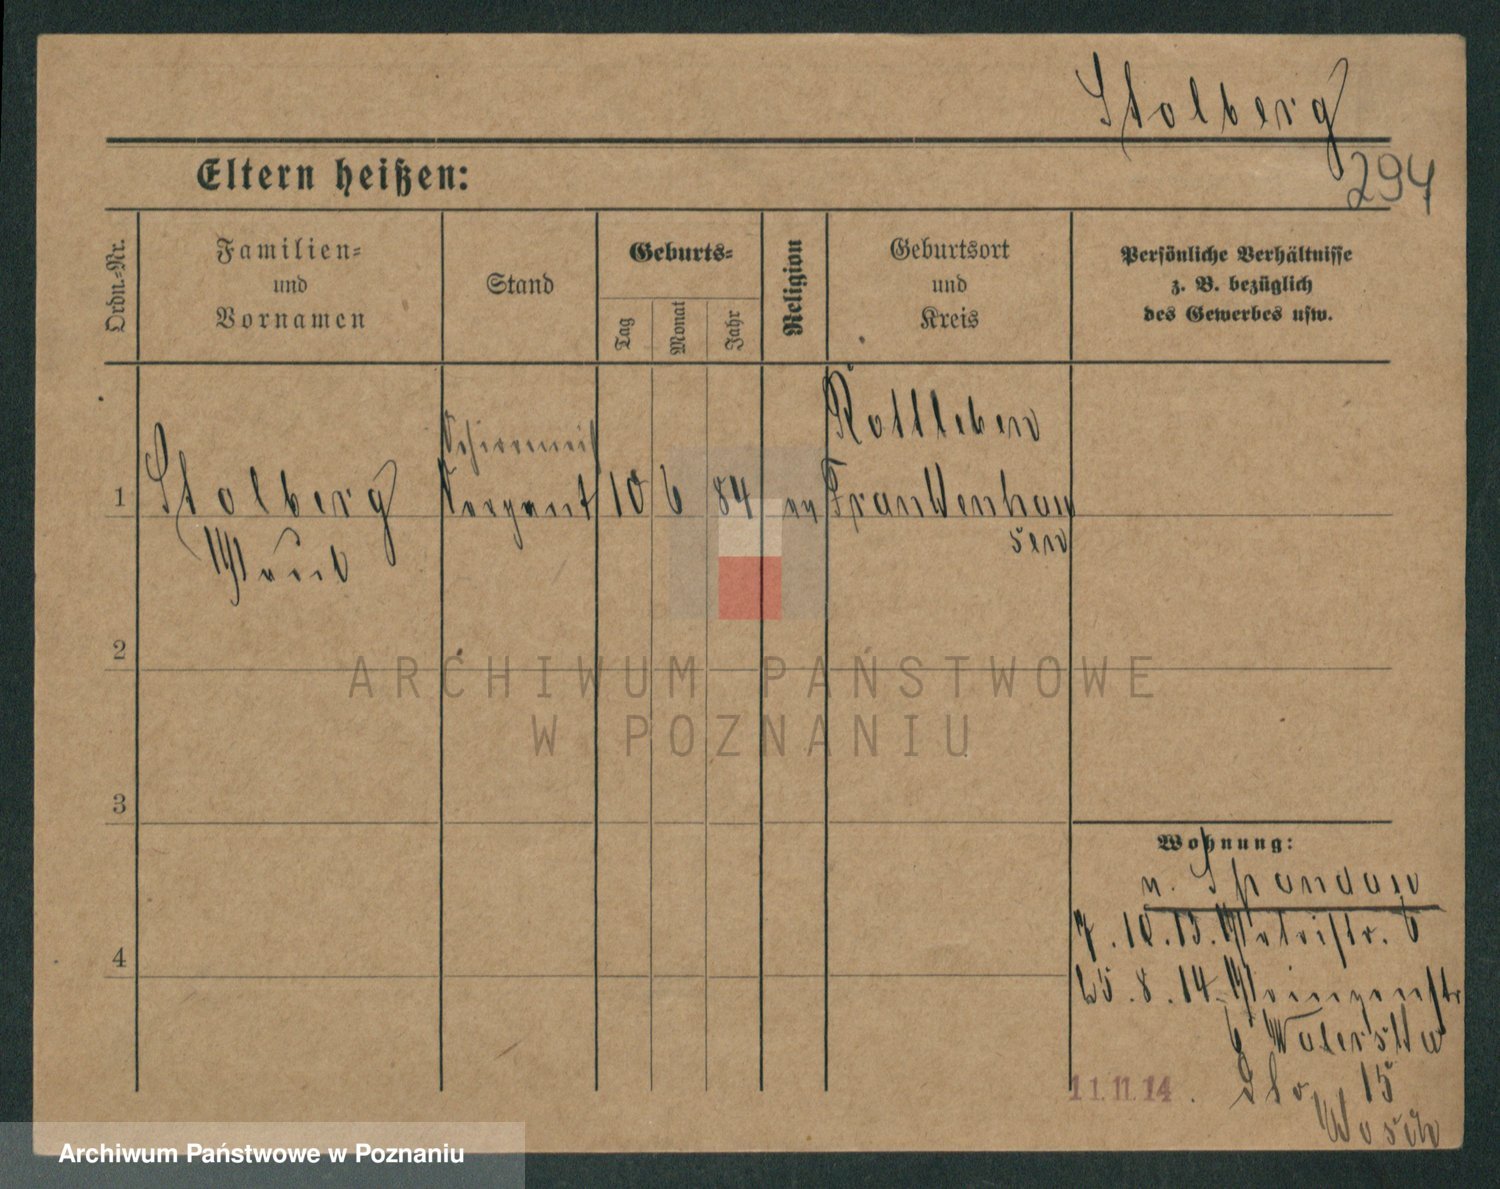 Stolberg
294
Eltern heißen:
Ordn.-Nr.
Familien-
und
Vornamen
Stand
Geburts-
Tag
Monat
Jahr
Religion
Geburtsort
und
Kreis
Persönliche Verhältnisse
z. B. bezüglich
des Gewerbes usw.
1
Stolberg
Schirrmeist
Sergent
10
6
84
ev
Rottleben
Frankenhau
sen
2
3
4
Wohnung:
n. Spandau
7.10.13.
25.8.14
6
11.11.14.
15
ARCHIWUM PAŃSTWOWE
W POZNANIU
Archiwum Państwowe w Poznaniu